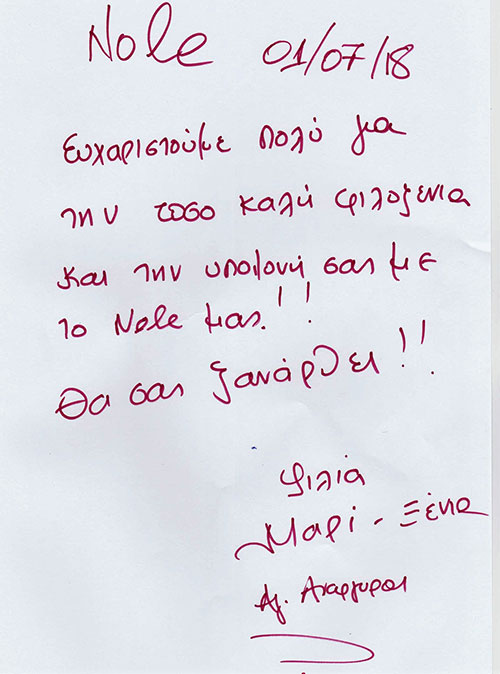 Nole 01/07/18
Ευχαριστούμε πολύ για
την τοσο καλή φιλοξενια
και την υπομονή σας με
το Nole μας.!!
Θα σας ξανάρθει!!
Φιλιά
Μαρί - Ξένια
Αγ. Αναργυροι